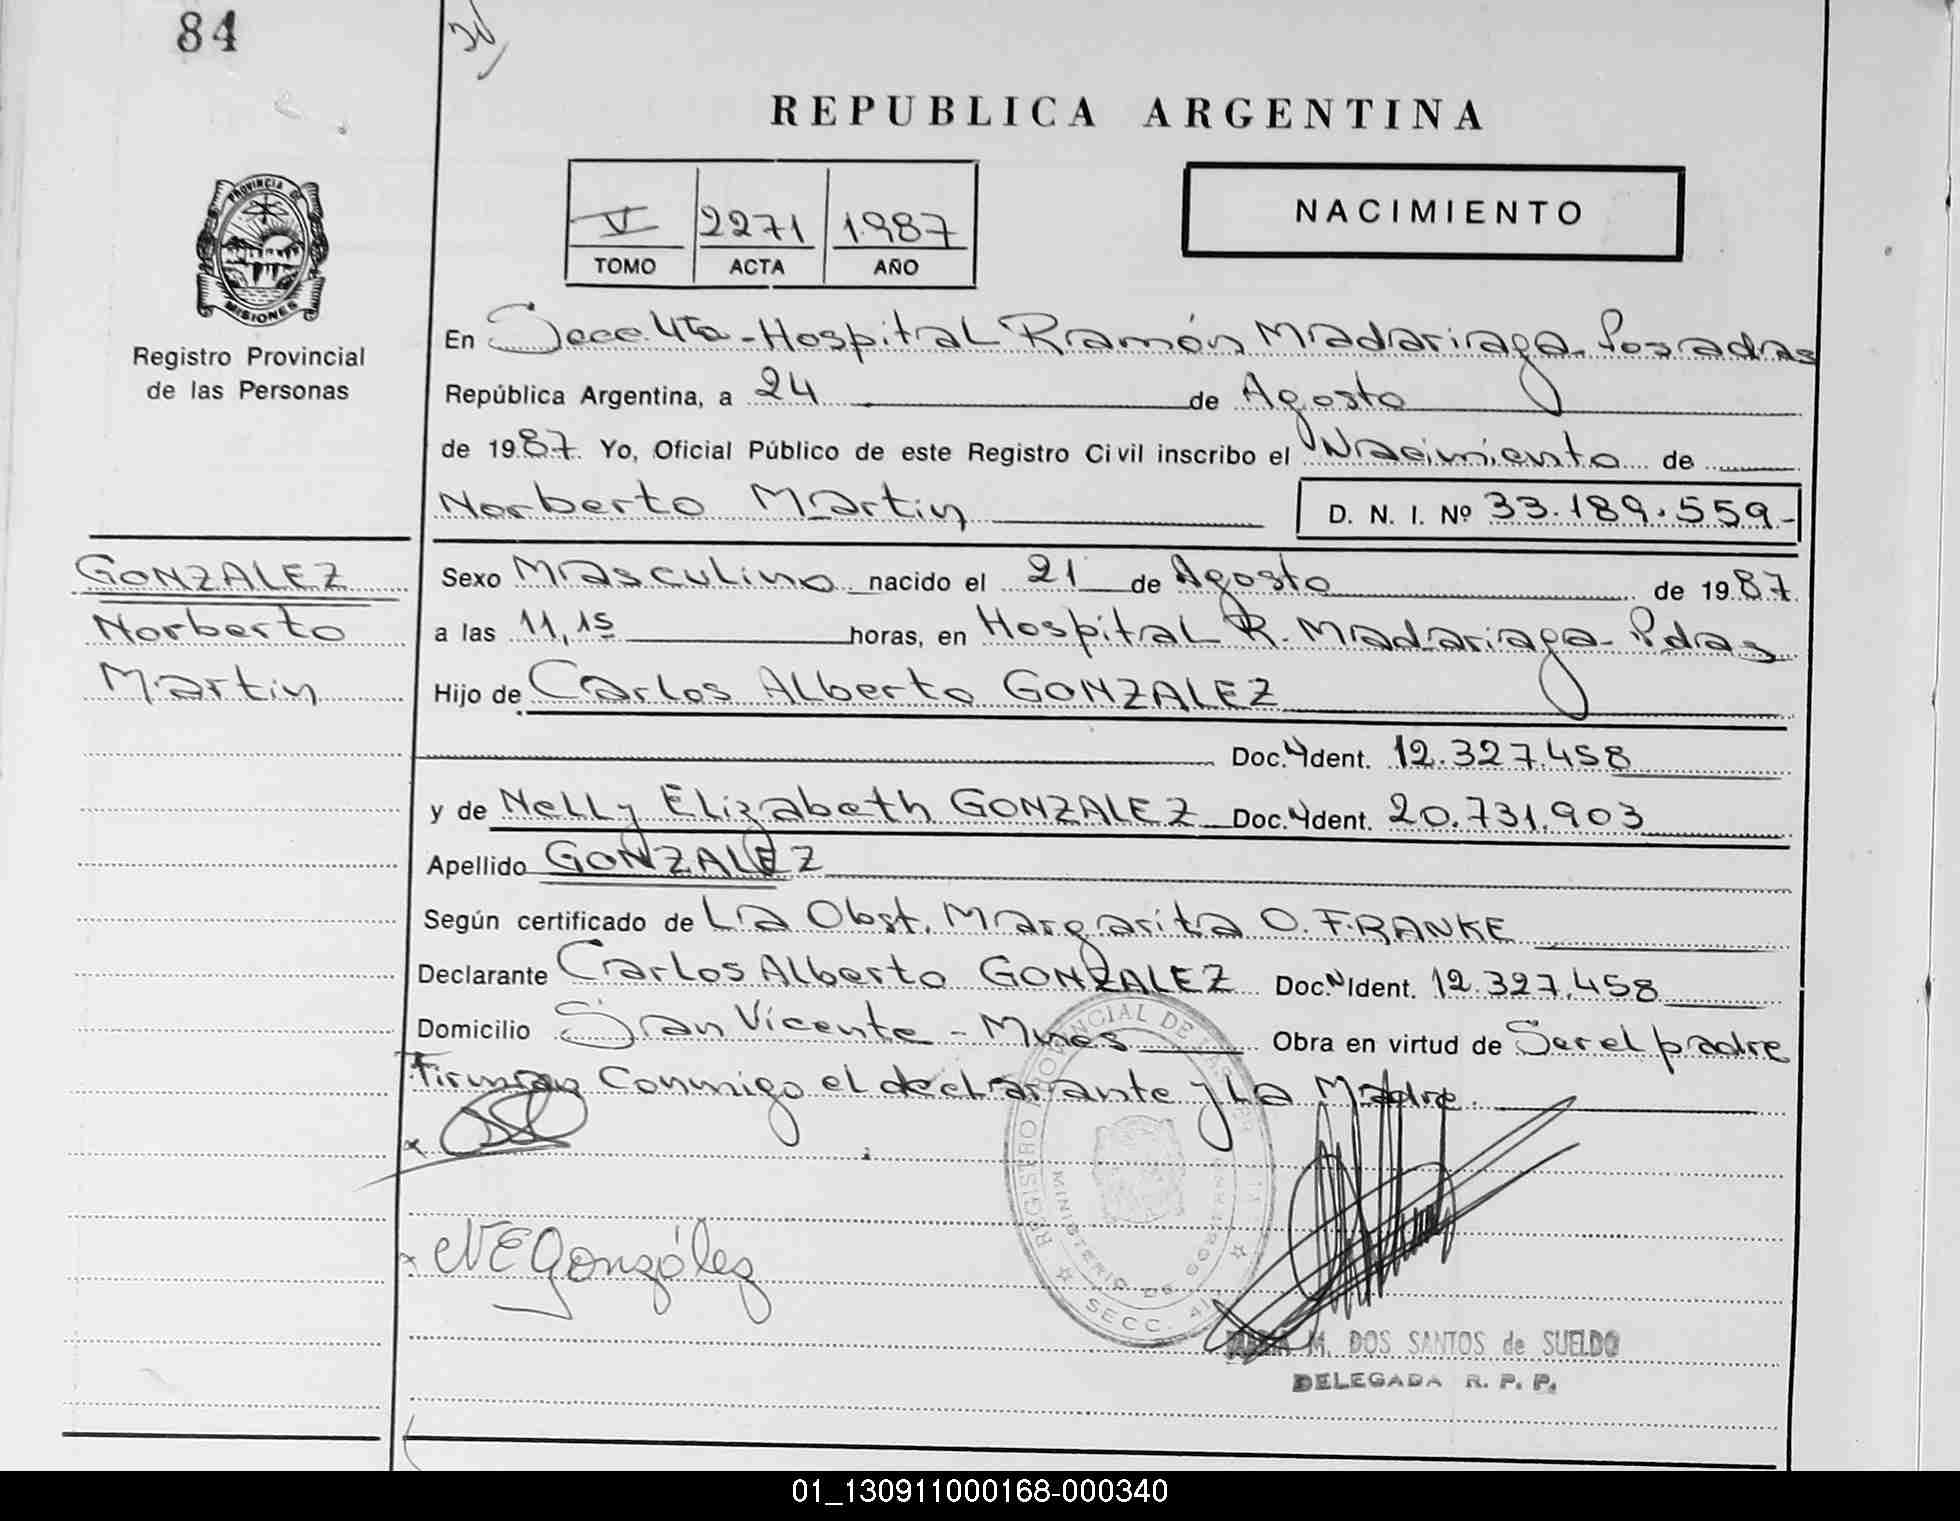 84
REPUBLICA ARGENTINA
V 2271 1.987
TOMO ACTA AÑO
NACIMIENTO
PROVINCIA DE
MISIONES
Registro Provincial
de las Personas
En Secc. 4ta - Hospital Ramón Madariaga - Posadas
República Argentina, a 24 de Agosto
de 1987. Yo, Oficial Público de este Registro Civil inscribo el Nacimiento de
Norberto Martin D. N. I. Nº 33.189.559.-
GONZALEZ
Norberto
Martin
Sexo Masculino nacido el 21 de Agosto de 1987.
a las 11,15 horas, en Hospital R. Madariaga - Pdas
Hijo de Carlos Alberto GONZALEZ
Doc. Ydent. 12.327.458
y de Nelly Elizabeth GONZALEZ Doc. Ydent. 20.731.903
Apellido GONZALEZ
Según certificado de La Obst. Margarita O. FRANKE
Declarante Carlos Alberto GONZALEZ Doc. N Ident. 12.327.458
Domicilio San Vicente - Mnes Obra en virtud de Ser el padre
Firman Conmigo el declarante y La Madre.
x
x NEGonzález
REGISTRO PROVINCIAL DE LAS PER
MINISTERIO DE GOBIERNO
SECC. 4
M. DOS SANTOS de SUELDO
DELEGADA R. P. P.
01_130911000168-000340